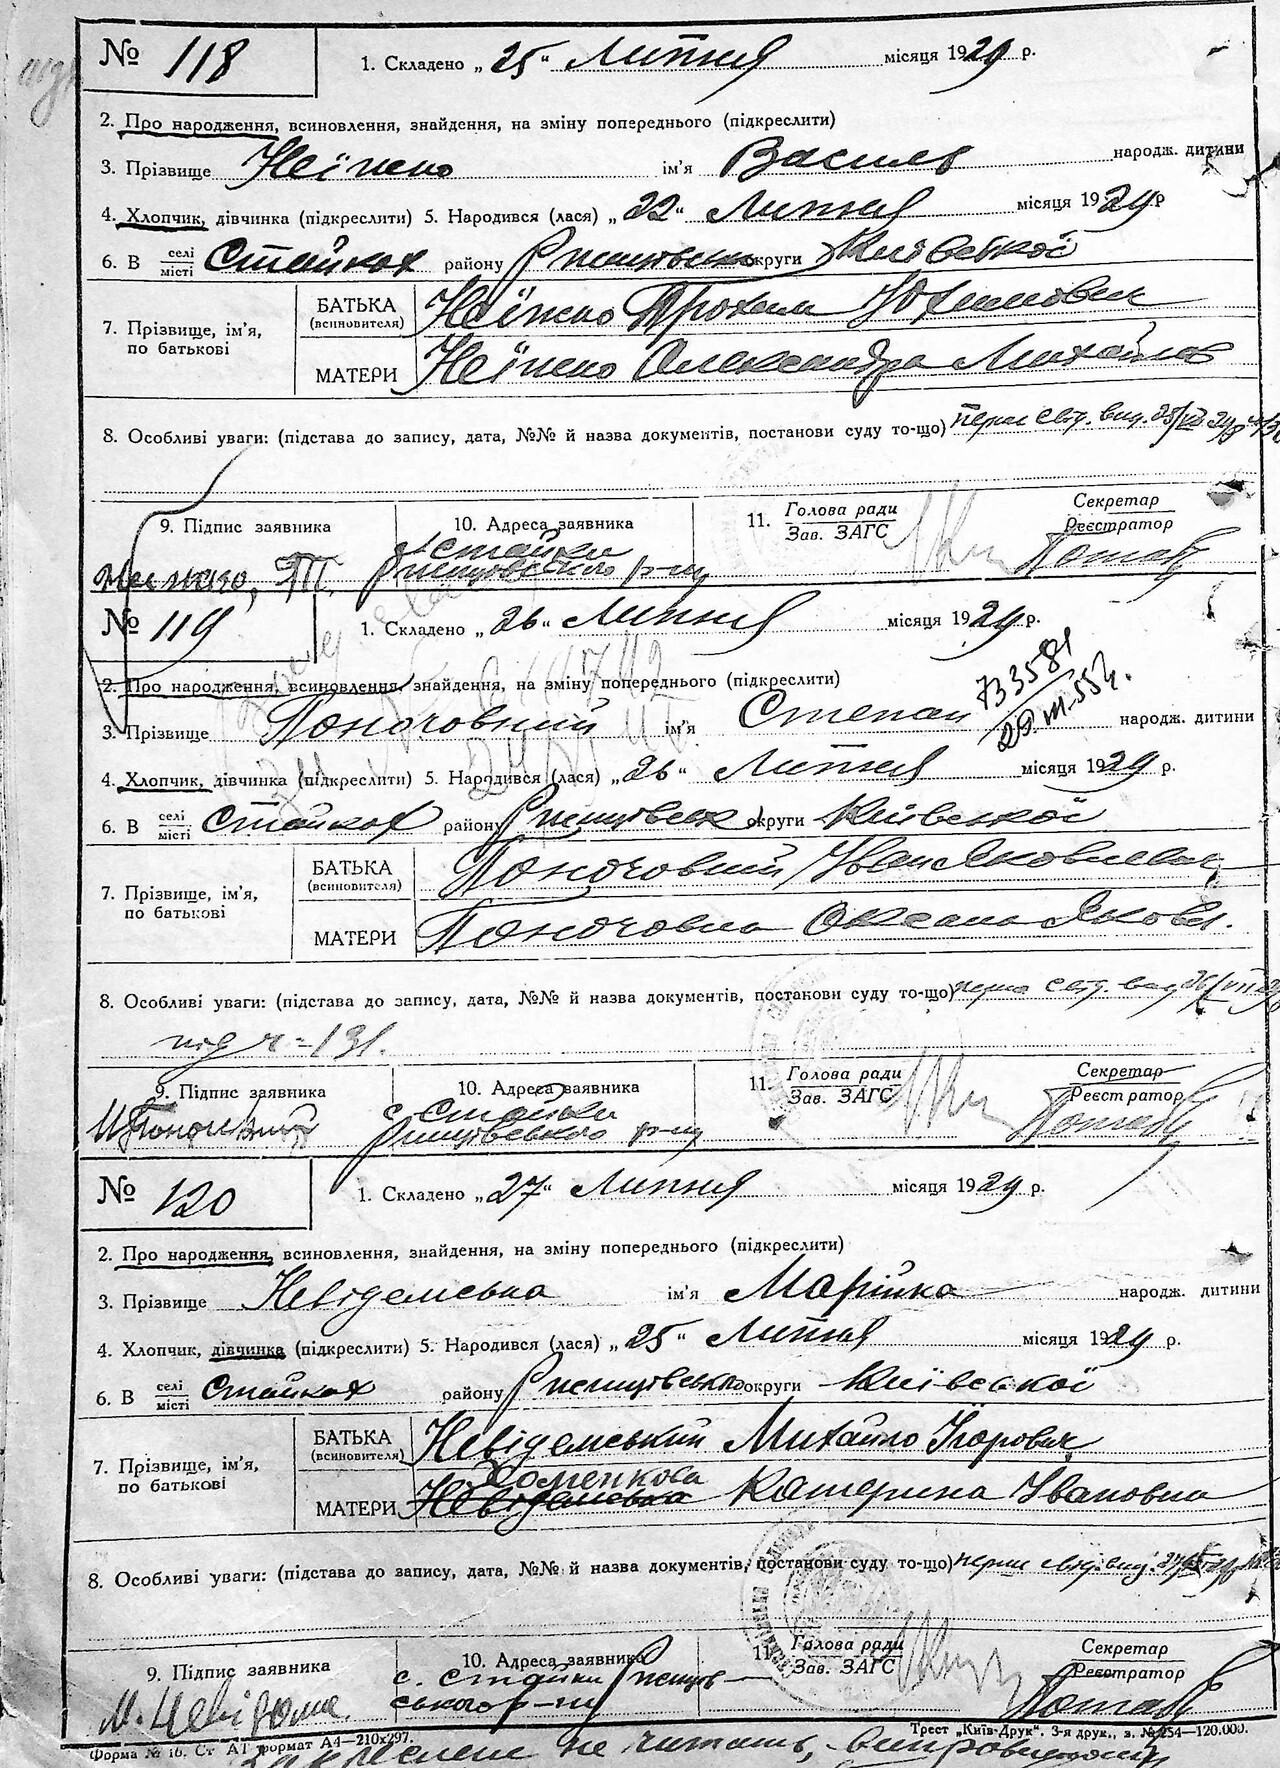 № 118
1. Складено „ 25 “ Липня місяця 1929 р.
2. Про народження, всиновлення, знайдення, на зміну попереднього (підкреслити)
3. Прізвище Неїжко ім'я Василь народж. дитини
4. Хлопчик, дівчинка (підкреслити) 5. Народився (лася) „ 22 “ Липня місяця 1929 р
6. В селі місті Стайках району Ржищівськ округи Київської
7. Прізвище, ім'я, по батькові
БАТЬКА (всиновителя) Неїжко Юхимович
МАТЕРИ Неїжко Олександра Михайлов
8. Особливі уваги: (підстава до запису, дата, №№ й назва документів, постанови суду то-що) перш свід. вид. 25/VII 29
9. Підпис заявника
10. Адреса заявника с. Стайки Ржищівського р-ну
11. Голова ради Зав. ЗАГС
Секретар Реєстратор
№ 119
1. Складено „ 26 “ Липня місяця 1929 р.
2. Про народження, всиновлення, знайдення, на зміну попереднього (підкреслити)
733581
3. Прізвище Поночовний ім'я Степан народж. дитини
4. Хлопчик, дівчинка (підкреслити) 5. Народився (лася) „ 26 “ Липня місяця 1929 р.
6. В селі місті Стайках району Ржищівськ округи Київської
7. Прізвище, ім'я, по батькові
БАТЬКА (всиновителя) Поночовний Іван Яковлевич
МАТЕРИ Поночовна Оксана Яковл.
8. Особливі уваги: (підстава до запису, дата, №№ й назва документів, постанови суду то-що) перш свід. вид 26/VII 29
під ч = 131.
9. Підпис заявника
10. Адреса заявника с. Стайки Ржищівського р-ну
11. Голова ради Зав. ЗАГС
Секретар Реєстратор
№ 120
1. Складено „ 27 “ Липня місяця 1929 р.
2. Про народження, всиновлення, знайдення, на зміну попереднього (підкреслити)
3. Прізвище Невідемська ім'я Марійка народж. дитини
4. Хлопчик, дівчинка (підкреслити) 5. Народився (лася) „ 25 “ Липня місяця 1929 р.
6. В селі місті Стайках району Ржищівської округи Київської
7. Прізвище, ім'я, по батькові
БАТЬКА (всиновителя) Невідемський Михайло Їгорович
Хоменкова
МАТЕРИ Невідемська Катерина Івановна
8. Особливі уваги: (підстава до запису, дата, №№ й назва документів, постанови суду то-що) перш свід. вид.
9. Підпис заявника
10. Адреса заявника с. Стайки Ржищівського р-ну
11. Голова ради Зав. ЗАГС
Секретар Реєстратор
Форма № 16. Ст АТ формат А4—210х297.
Трест „Київ-Друк“. 3-я друк., з. № 254—120.000.
закреслене не читать,